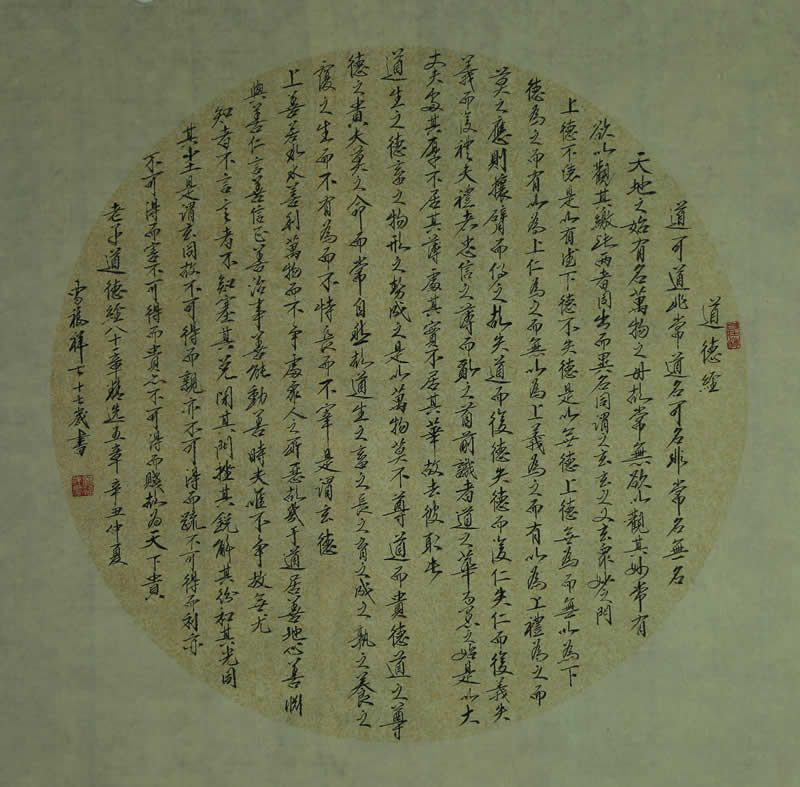 道德經
道可道非常道名可名非常名無名
天地之始有名萬物之母故常無欲以觀其妙常有
欲以觀其徼此兩者同出而異名同謂之玄玄之又玄衆妙之門
上德不德是以有德下德不失德是以無德上德無為而無以為下
德為之而有以為上仁為之而無以為上義為之而有以為上禮為之而
莫之應則攘臂而仍之故失道而後德失德而後仁失仁而後義失
義而後禮夫禮者忠信之薄而亂之首前識者道之華而愚之始是以大
丈夫處其厚不居其薄處其實不居其華故去彼取此
道生之德畜之物形之勢成之是以萬物莫不尊道而貴德道之尊
德之貴夫莫之命而常自然故道生之畜之長之育之成之熟之養之
覆之生而不有為而不恃長而不宰是謂玄德
上善若水水善利萬物而不爭處衆人之所惡故幾于道居善地心善淵
與善仁言善信正善治事善能動善時夫唯不爭故無尤
知者不言言者不知塞其兌閉其門挫其銳解其紛和其光同
其塵是謂玄同故不可得而親亦不可得而疏不可得而利亦
不可得而害不可得而貴亦不可得而賤故為天下貴
老子道德經八十章精選五章 辛丑仲夏
福祥七十七歲書